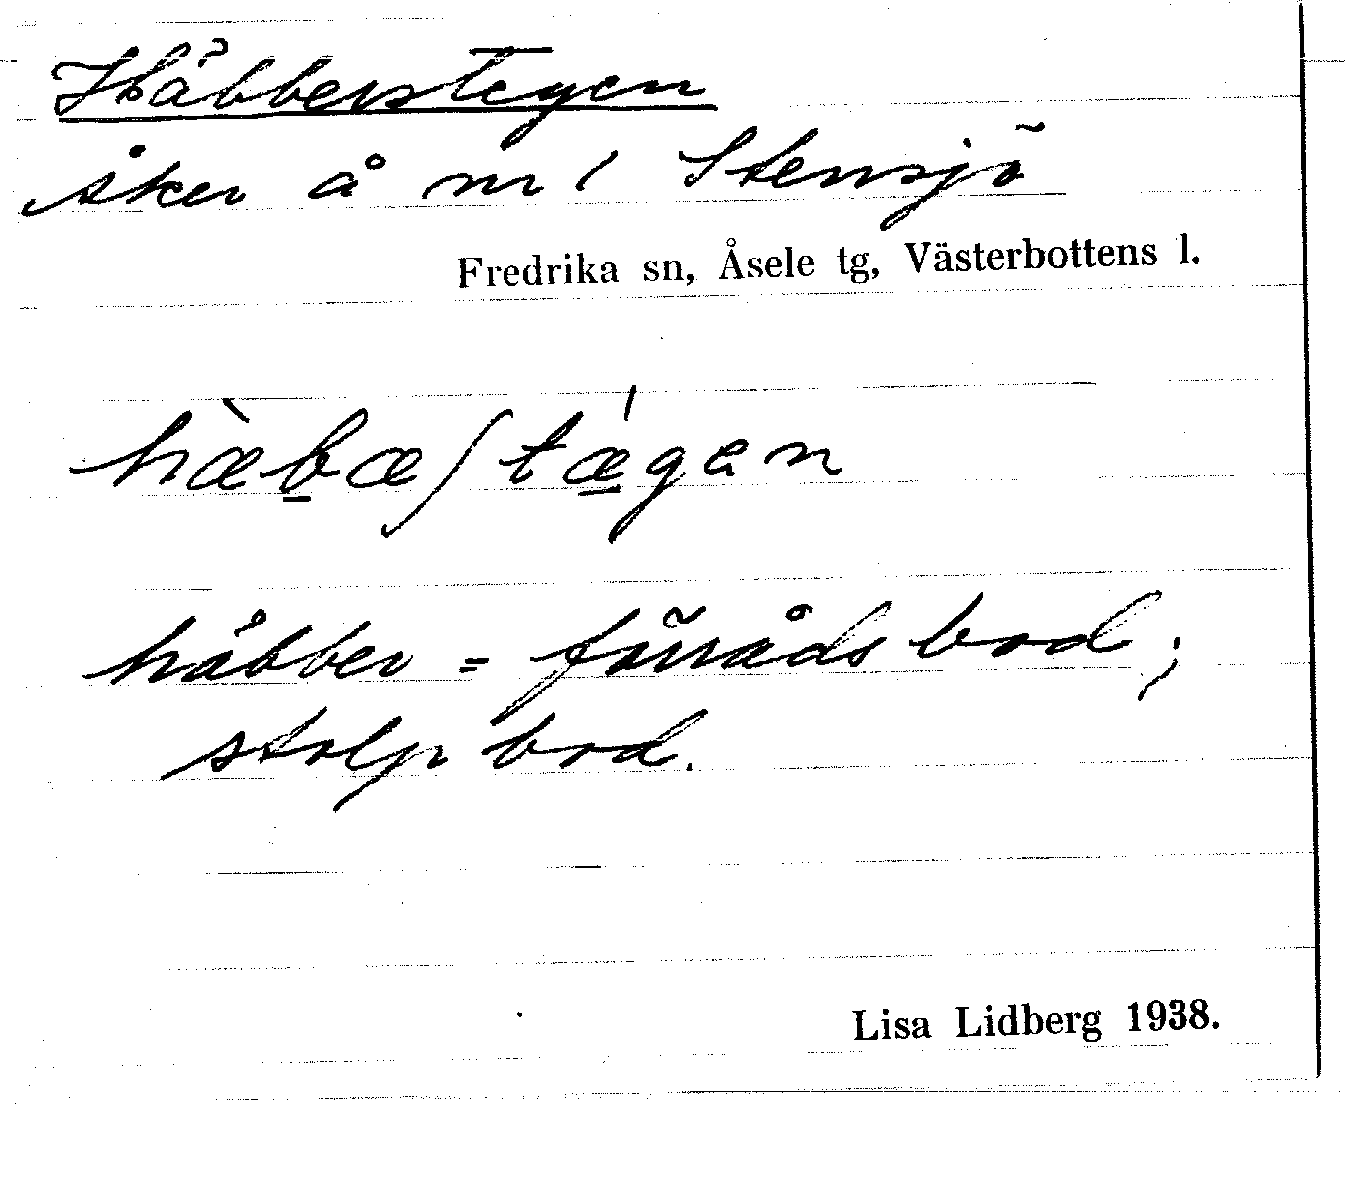 Håbberstegen
åker å nr 1 Stensjö
Fredrika sn, Åsele tg, Västerbottens l.
hæ̀bæʃtæ̍gen
håbber = förrådsbod;
stolpbod.
Lisa Lidberg 1938.